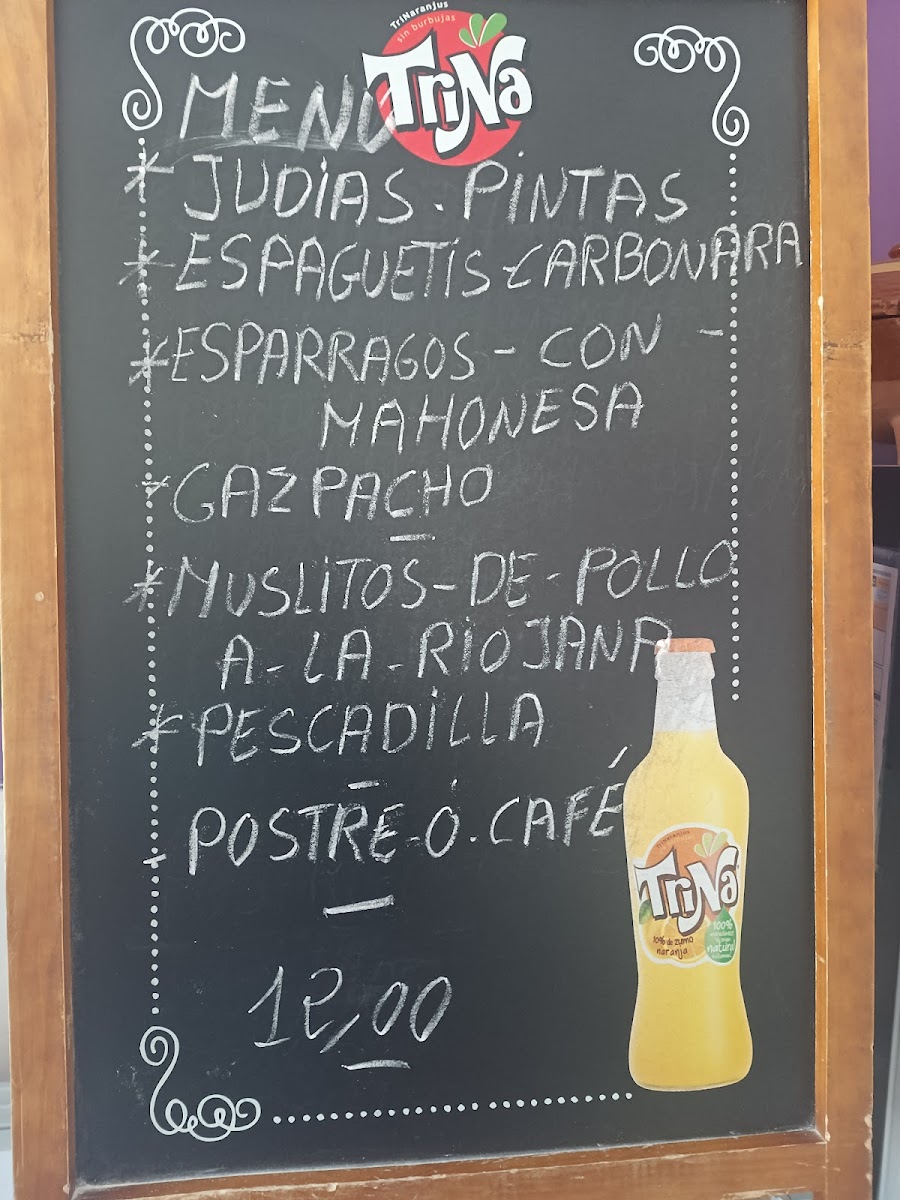 TriNaranjus
sin burbujas
TriNa
MENU
* JUDIAS. PINTAS
* ESPAGUETIS-CARBONARA
* ESPARRAGOS - CON -
MAHONESA
* GAZPACHO
* MUSLITOS-DE-POLLO
A-LA-RIOJANA
* PESCADILLA
POSTRE-Ó.CAFÉ
12,00
TriNaranjus
TriNa
10% de zumo
naranja
100%
natural